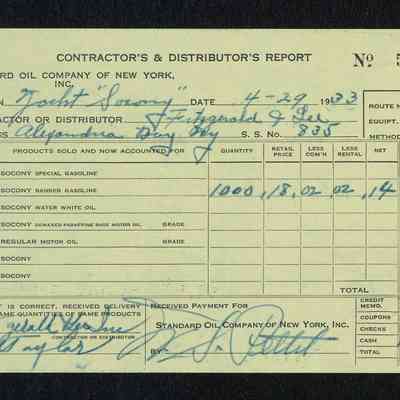 CONTRACTOR'S & DISTRIBUTOR'S REPORT No 5
RD OIL COMPANY OF NEW YORK,
INC.
N Yacht "Socony" DATE 4-29 1933
CTOR OR DISTRIBUTOR Fitzgerald & Lee
SS Alexandria Bay Ny S. S. No. 835
ROUTE N
EQUIPT.
METHOD
PRODUCTS SOLD AND NOW ACCOUNTED FOR QUANTITY RETAIL PRICE LESS COM'N LESS RENTAL NET
SOCONY SPECIAL GASOLINE
SOCONY BANNER GASOLINE 1000 .18 .02 .02 .14
SOCONY WATER WHITE OIL
SOCONY DEWAXED PARAFFINE BASE MOTOR OIL GRADE
REGULAR MOTOR OIL GRADE
SOCONY
SOCONY
TOTAL
T IS CORRECT, RECEIVED DELIVERY
AME QUANTITIES OF SAME PRODUCTS
gerald
CONTRACTOR OR DISTRIBUTOR
Taylor
RECEIVED PAYMENT FOR
STANDARD OIL COMPANY OF NEW YORK, INC.
BY
CREDIT MEMO.
COUPONS
CHECKS
CASH
TOTAL